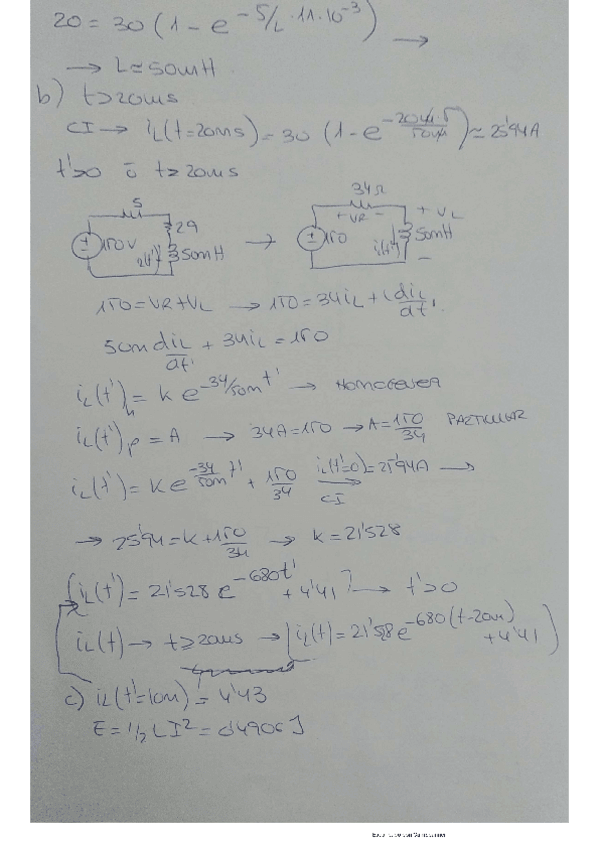 20 = 30 (1 - e^{-5/L · 11·10^{-3}}) →
→ L ≈ 50mH
b) t>20ms
CI → iL(t=20ms) = 30 (1 - e^{-20m·5/50m}) ≈ 25'94A
t'>0 ó t≥20ms
5 29 150V i(t') 50mH → 34Ω + VR - 150 i(t') 50mH + VL -
150 = VR + VL → 150 = 34iL + L diL/dt'
50m diL/dt' + 34iL = 150
iL(t')h = k e^{-34/50m t'} → HOMOGENEA
iL(t')p = A → 34A = 150 → A = 150/34 PARTICULAR
iL(t') = k e^{-34/50m t'} + 150/34 iL(t'=0) = 25'94A → CI →
→ 25'94 = k + 150/34 → k = 21'528
iL(t') = 21'528 e^{-680t'} + 4'41 → t'>0
iL(t) → t≥20ms → iL(t) = 21'528 e^{-680(t-20m)} + 4'41
c) iL(t'=10m) = 4'43
E = 1/2 L I² = 0'4906 J